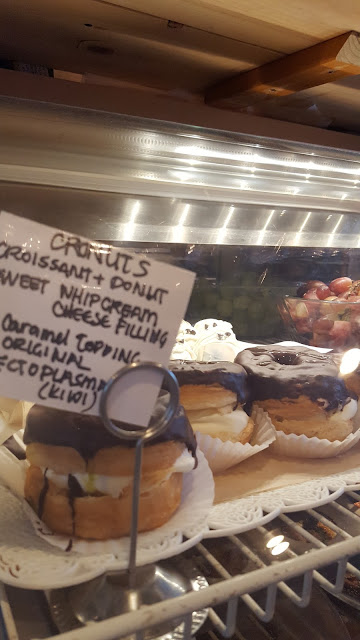 CRONUTS
CROISSANT + DONUT
SWEET WHIPCREAM
CHEESE FILLING
Caramel TOPPING
ORIGINAL
ECTOPLASM
(KIWI)